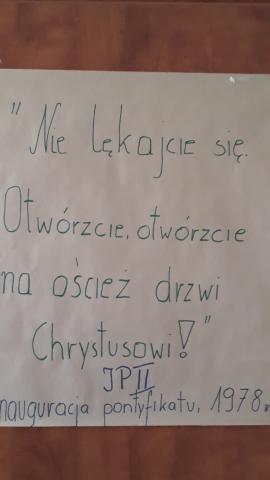 "Nie lękajcie się.
Otwórzcie, otwórzcie
na oścież drzwi
Chrystusowi!"
JPII
inauguracja pontyfikatu, 1978r